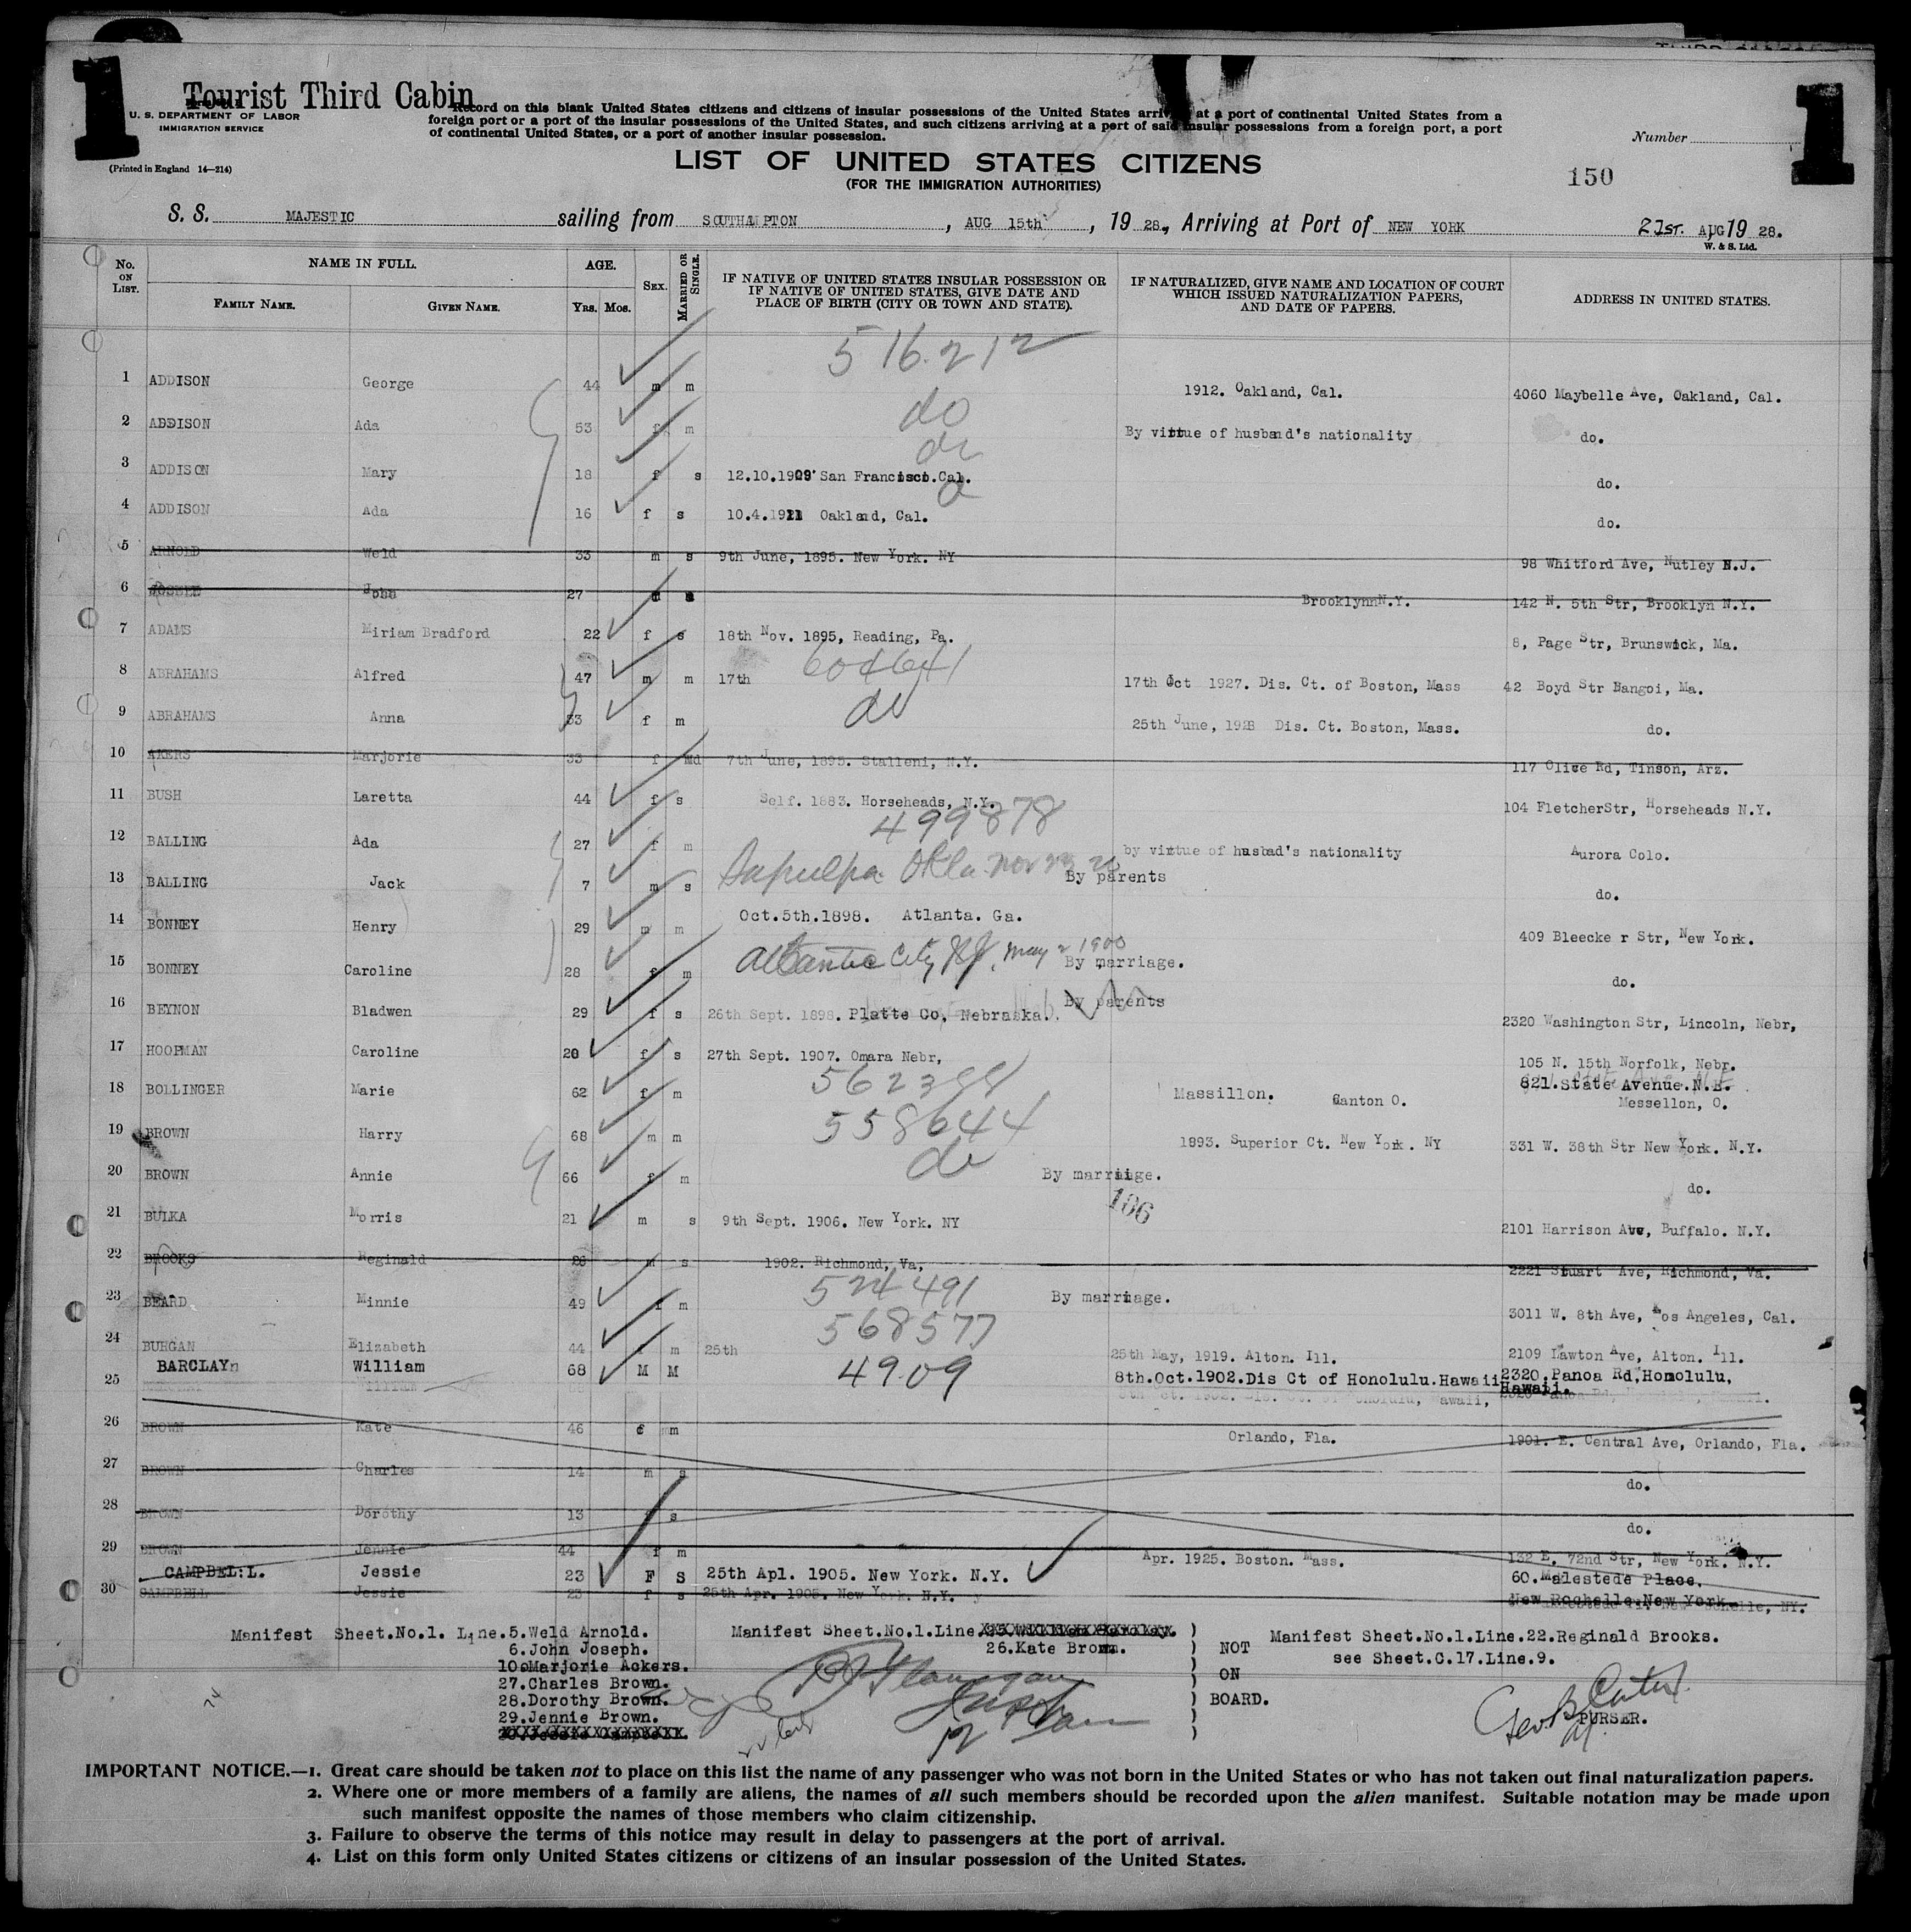 1
1
Tourist Third Cabin
U. S. DEPARTMENT OF LABOR
IMMIGRATION SERVICE
(Printed in England 14—214)
Record on this blank United States citizens and citizens of insular possessions of the United States arriving at a port of continental United States from a
foreign port or a port of the insular possessions of the United States, and such citizens arriving at a port of said insular possessions from a foreign port, a port
of continental United States, or a port of another insular possession.
Number
LIST OF UNITED STATES CITIZENS
(FOR THE IMMIGRATION AUTHORITIES)
150
S. S. MAJESTIC sailing from SOUTHAMPTON, AUG 15th, 19 28., Arriving at Port of NEW YORK 21ST. AUG 19 28.
W. & S. Ltd.
No. ON LIST. NAME IN FULL. AGE. SEX. MARRIED OR SINGLE. IF NATIVE OF UNITED STATES INSULAR POSSESSION OR IF NATIVE OF UNITED STATES, GIVE DATE AND PLACE OF BIRTH (CITY OR TOWN AND STATE). IF NATURALIZED, GIVE NAME AND LOCATION OF COURT WHICH ISSUED NATURALIZATION PAPERS, AND DATE OF PAPERS. ADDRESS IN UNITED STATES.
FAMILY NAME. GIVEN NAME. YRS. MOS.
516.212
1 ADDISON George 44 m m 1912. Oakland, Cal. 4060 Maybelle Ave, Oakland, Cal.
do
2 ADDISON Ada 53 f m By virtue of husband's nationality do.
do
3 ADDISON Mary 18 f s 12.10.1909 San Francisco.Cal. do.
4 ADDISON Ada 16 f s 10.4.1911 Oakland, Cal. do.
5 ARNOLD Weld 33 m s 9th June, 1895. New York. NY 98 Whitford Ave, Nutley N.J.
6 John 27 m Brooklynn N.Y. 142 N. 5th Str, Brooklyn N.Y.
7 ADAMS Miriam Bradford 22 f s 18th Nov. 1895, Reading, Pa. 8, Page Str, Brunswick, Ma.
604641
8 ABRAHAMS Alfred 47 m m 17th 17th Oct 1927. Dis. Ct. of Boston, Mass 42 Boyd Str Bangoi, Ma.
do
9 ABRAHAMS Anna 33 f m 25th June, 1928 Dis. Ct. Boston, Mass. do.
10 AKERS Marjorie 33 f Md 7th June, 1895. Stalleni, N.Y. 117 Olive Rd, Tinson, Arz.
11 BUSH Laretta 44 f s Self. 1883. Horseheads, N.Y. 104 FletcherStr, Horseheads N.Y.
499878
12 BALLING Ada 27 f m by virtue of husbad's nationality Aurora Colo.
13 BALLING Jack 7 m s Sapulpa Okla. Nov By parents do.
14 BONNEY Henry 29 m m Oct.5th.1898. Atlanta. Ga. 409 Bleecke r Str, New York.
15 BONNEY Caroline 28 f m Atlantic City NJ, May 2 1900 By marriage. do.
16 BEYNON Bladwen 29 f s 26th Sept. 1898. Platte Co, Nebraska. By parents 2320 Washington Str, Lincoln, Nebr,
17 HOOPMAN Caroline 20 f s 27th Sept. 1907. Omara Nebr, 105 N. 15th Norfolk, Nebr.
562388
18 BOLLINGER Marie 62 f m Massillon. Canton O. 821.State Avenue.N.E.
Messellon, O.
558644
19 BROWN Harry 68 m m 1893. Superior Ct. New York. NY 331 W. 38th Str New York. N.Y.
do
20 BROWN Annie 66 f m By marriage. do.
106
21 BULKA Morris 21 m s 9th Sept. 1906. New York. NY 2101 Harrison Ave, Buffalo. N.Y.
22 BROOKS Reginald 26 m s 1902. Richmond, Va, 2221 Stuart Ave, Richmond, Va.
524491
23 BEARD Minnie 49 f m By marriage. 3011 W. 8th Ave, Los Angeles, Cal.
568577
24 BURGAN Elizabeth 44 f m 25th 25th May, 1919. Alton. Ill. 2109 Lawton Ave, Alton. Ill.
25 BARCLAYn William 68 M M 4909 8th.Oct.1902.Dis Ct of Honolulu.Hawaii 2320.Panoa Rd,Honolulu,
Hawaii.
26 BROWN Kate 46 f m Orlando, Fla. 1901. E. Central Ave, Orlando, Fla.
27 BROWN Charles 14 m s do.
28 BROWN Dorothy 13 f s do.
29 BROWN Jennie 44 f m Apr. 1925. Boston. Mass. 132 E. 72nd Str, New York. N.Y.
CAMPBEL:L. Jessie 23 F S 25th Apl. 1905. New York. N.Y. 60.Malestede Place.
New Rochelle.New York.
30 CAMPBELL Jessie 23 f s 25th Apr. 1905. New York. N.Y.
Manifest Sheet.No.1. Line.5.Weld Arnold.
6.John Joseph.
10.Marjorie Ackers.
27.Charles Brown.
28.Dorothy Brown.
29.Jennie Brown.
Manifest Sheet.No.1.Line.
26.Kate Brown.
NOT
ON
BOARD.
Manifest Sheet.No.1.Line.22.Reginald Brooks.
see Sheet.C.17.Line.9.
PURSER.
IMPORTANT NOTICE.—1. Great care should be taken not to place on this list the name of any passenger who was not born in the United States or who has not taken out final naturalization papers.
2. Where one or more members of a family are aliens, the names of all such members should be recorded upon the alien manifest. Suitable notation may be made upon
such manifest opposite the names of those members who claim citizenship.
3. Failure to observe the terms of this notice may result in delay to passengers at the port of arrival.
4. List on this form only United States citizens or citizens of an insular possession of the United States.